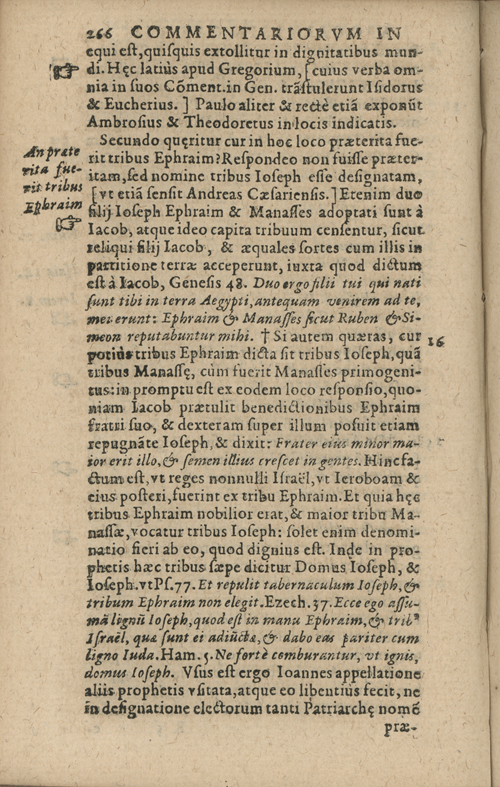 266 COMMENTARIORVM IN
equi est, quisquis extollitur in dignitatibus mun-
di. Hęc latius apud Gregorium, [cuius verba om-
nia in suos Cõment. in Gen. trãstulerunt Isidorus
& Eucherius.] Paulo aliter & rectè etiã exponũt
Ambrosius & Theodoretus in locis indicatis.
Secundo quęritur cur in hoc loco præterita fue-
An præte
rita fue-
rit tribus
Ephraim
rit tribus Ephraim? Respondeo non fuisse præter-
itam, sed nomine tribus Ioseph esse designatam,
[vt etiã sensit Andreas Cæsariensis.] Etenim duo
filij Ioseph Ephraim & Manasses adoptati sunt à
Iacob, atque ideo capita tribuum censentur, sicut
reliqui filij Iacob, & æquales sortes cum illis in
partitione terræ acceperunt, iuxta quod dictum
est à Iacob, Genesis 48. Duo ergo filii tui qui nati
sunt tibi in terra Aegypti, antequam venirem ad te,
mei erunt: Ephraim & Manasses sicut Ruben & Si-
meon reputabuntur mihi. † Si autem quæras, cur
16
potius tribus Ephraim dicta sit tribus Ioseph, quã
tribus Manassę, cùm fuerit Manasses primogeni-
tus: in promptu est ex eodem loco responsio, quo-
niam Iacob prætulit benedictionibus Ephraim
fratri suo, & dexteram super illum posuit etiam
repugnãte Ioseph, & dixit: Frater eius minor ma-
ior erit illo, & semen illius crescet in gentes. Hinc fa-
ctum est, vt reges nonnulli Israël, vt Ieroboam &
eius posteri, fuerint ex tribu Ephraim. Et quia hęc
tribus Ephraim nobilior erat, & maior tribu Ma-
nassæ, vocatur tribus Ioseph: solet enim denomi-
natio fieri ab eo, quod dignius est. Inde in pro-
phetis hæc tribus sæpe dicitur Domus Ioseph, &
Ioseph. vt Ps. 77. Et repulit tabernaculum Ioseph, &
tribum Ephraim non elegit. Ezech. 37. Ecce ego assu-
mã lignũ Ioseph, quod est in manu Ephraim, & trib⁹
Israël, quæ sunt ei adiũctæ, & dabo eas pariter cum
ligno Iuda. Ham. 5. Ne fortè comburantur, vt ignis,
domus Ioseph. Vsus est ergo Ioannes appellatione
aliis prophetis vsitata, atque eo libentius fecit, ne
in designatione electorum tanti Patriarchę nomẽ
præ-